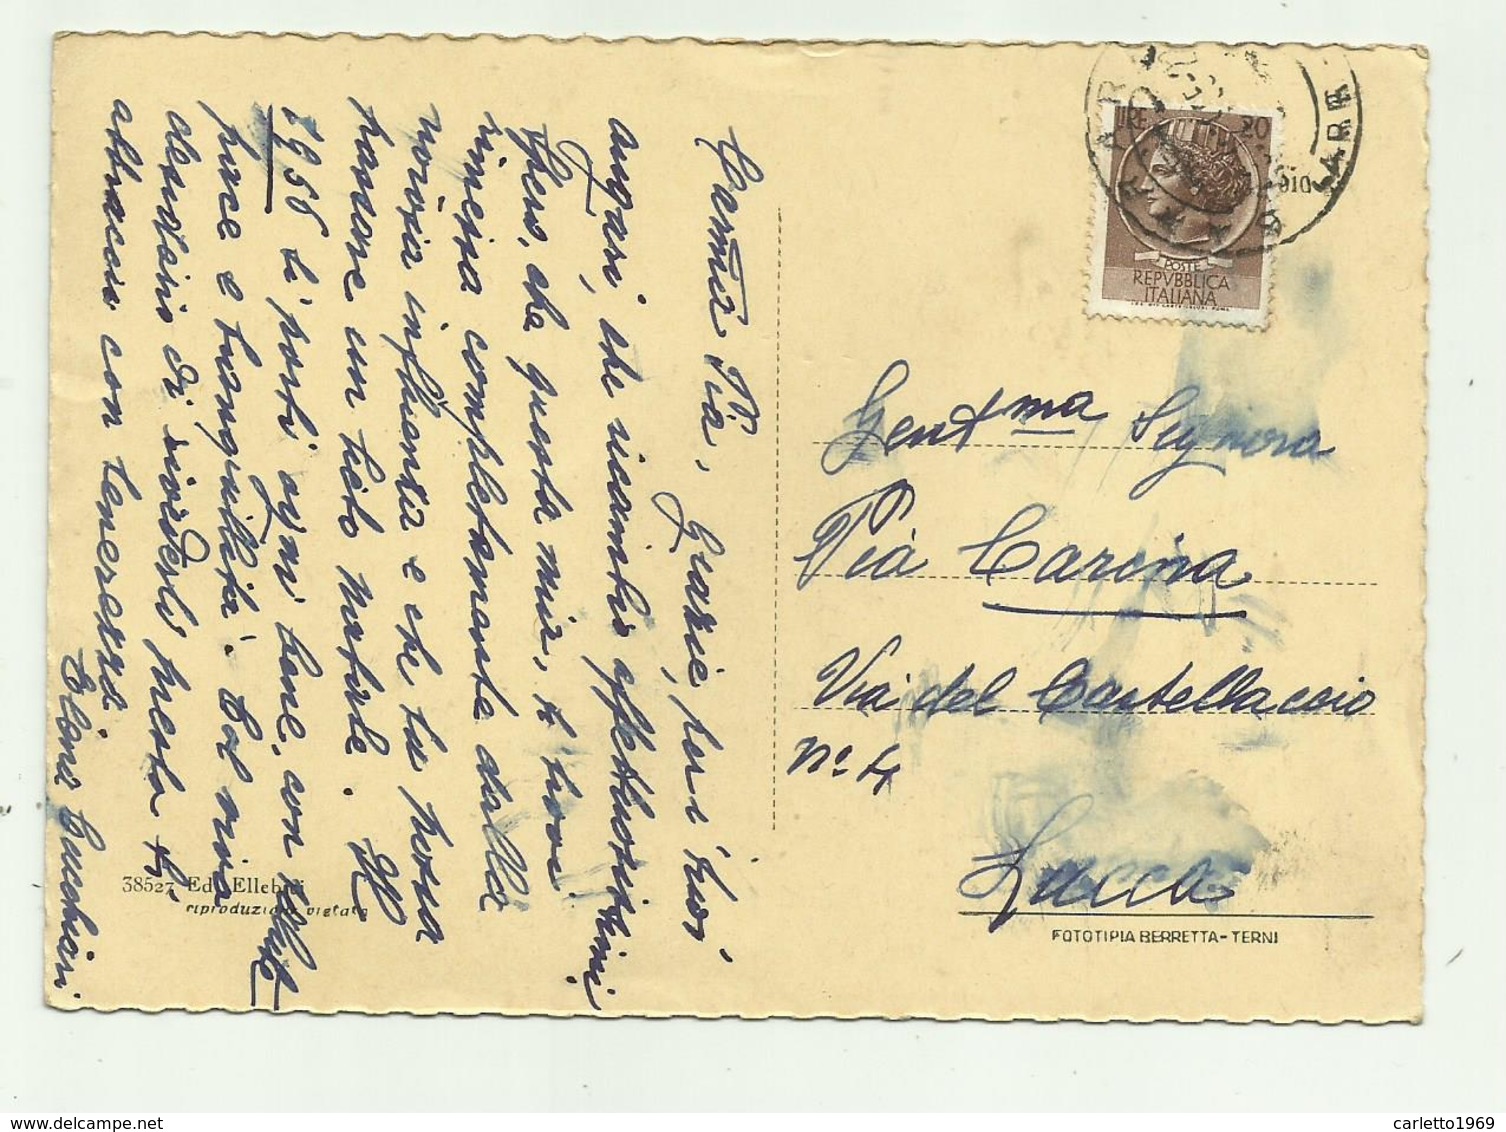 Carma Pia, Grazie, per i tuoi
auguri, che ricambio affettuosissimi
Spero, che questa mia, ti trovi
rimessa completamente dalla
noiosa influenza e che tu possa
passare un lieto natale. Il
1958 ti porti ogni bene, con salute
pace e tranquillità. Col vivo
desiderio di rivederti presto ti
abbraccio con tenerezza
Eliana Cucchiari
38527 Ed. Ellebici
riproduzione vietata
LIRE 20
POSTE
REPVBBLICA
ITALIANA
Gent ma Signora
Pia Carina
Via del Castellaccio
N° 4
Lucca
FOTOTIPIA BERRETTA - TERNI
carletto1969